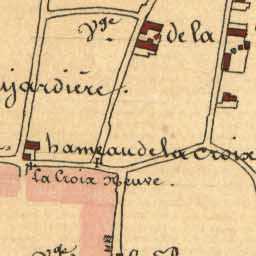 Vge de la
ujardière.
hameau de la Croix
La Croix Neuve.
Vge